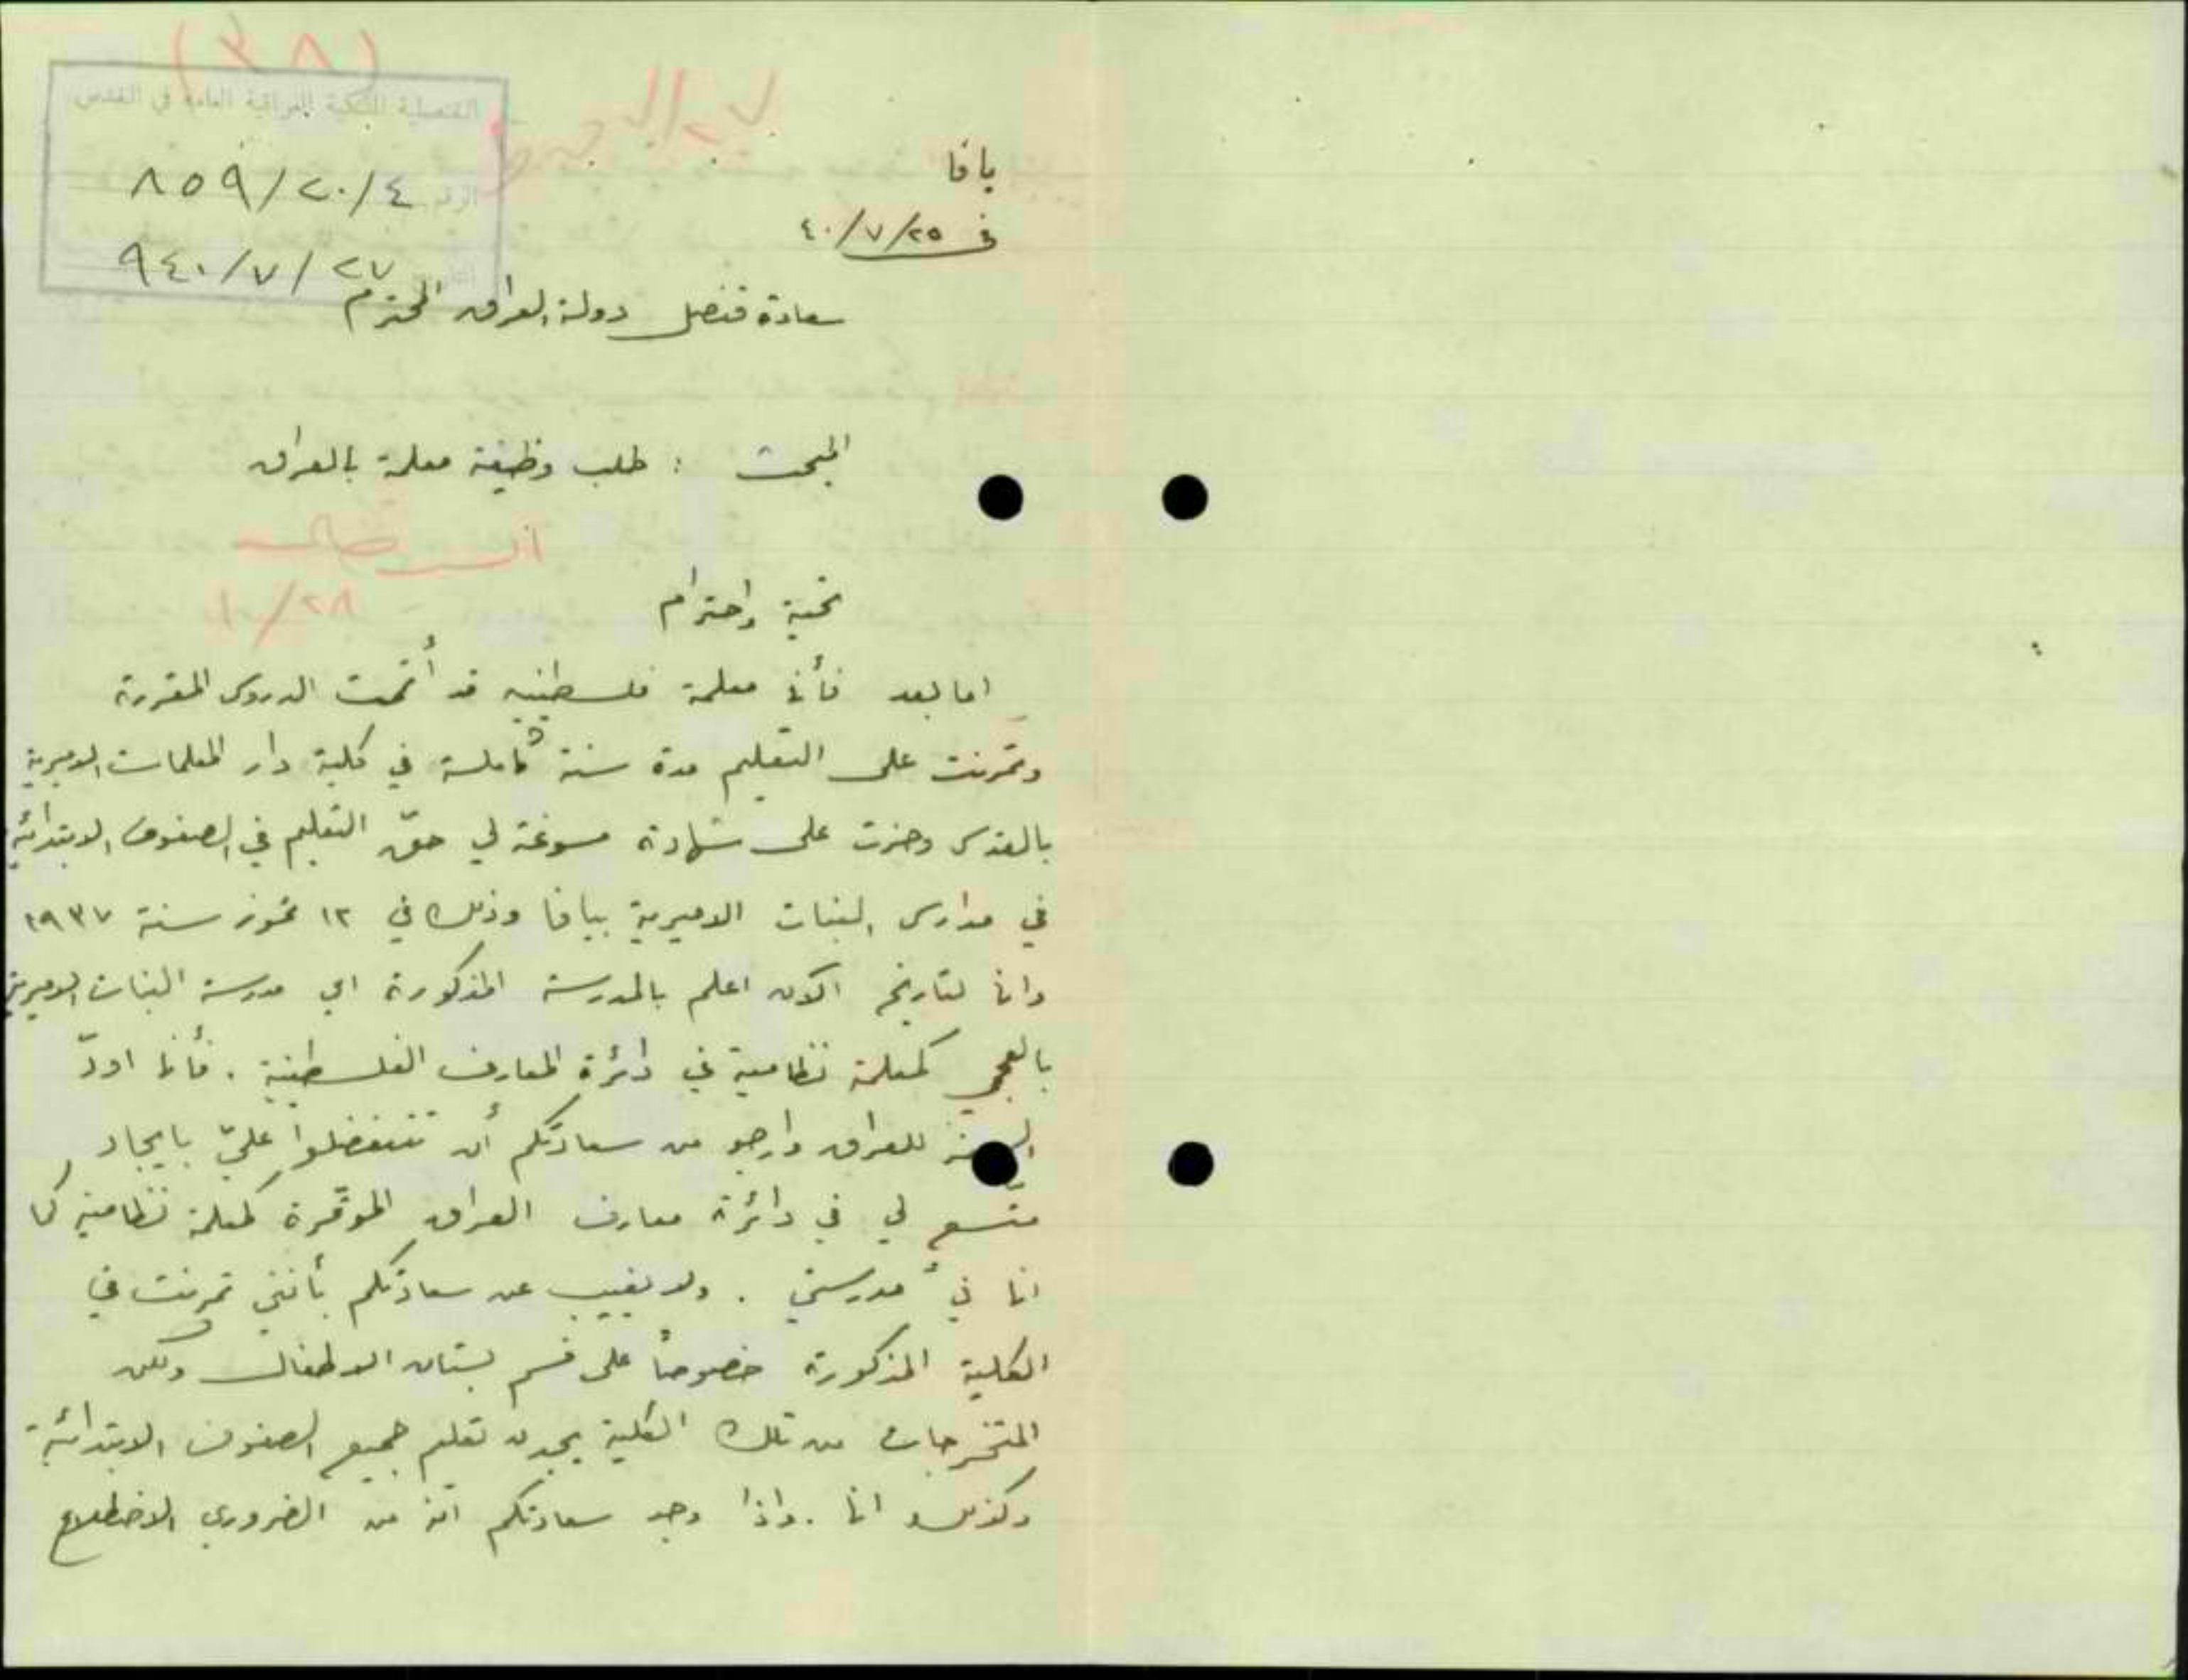 (٣٨)
القنصلية الملكية العراقية العامة في القدس
٨٥٩/٢٠/٤
٩٤٠/٧/٢٧
يافا
في ٤٠/٧/٢٥
سعادة قنصل دولة العراق المحترم
المبحث : طلب وظيفة معلمة بالعراق
تحية واحترام
اما بعد فأنا معلمة فلسطينيه قد أتممت الدروس المقررة
وتمرنت على التعليم مدة سنة كاملة في كلية دار المعلمات الاميرية
بالقدس وحزت على شهادة مسوغة لي حقّ التعليم في الصفوف الابتدائية
في مدارس البنات الاميرية بيافا وذلك في ١٢ تموز سنة ١٩٣٧
وانا لتاريخ الآن اعلم بالمدرسة المذكورة اي مدرسة البنات الاميرية
بالعجمي كمعلمة نظامية في دائرة المعارف الفلسطينية . فأنا اودّ
للعراق وارجو من سعادتكم أن تتفضلوا عليّ بايجاد
متّسع لي في دائرة معارف العراق الموقّرة كمعلمة نظامية كما
انا في مدرستي . ولا يغيب عن سعادتكم بأنني تمرنت في
الكلية المذكورة خصوصاً على قسم بستان الاطفال ولكن
المتخرجات من تلك الكلية يجدن تعليم جميع الصفوف الابتدائية
وكذلك انا . واذا وجد سعادتكم انه من الضروري الاضطلاع